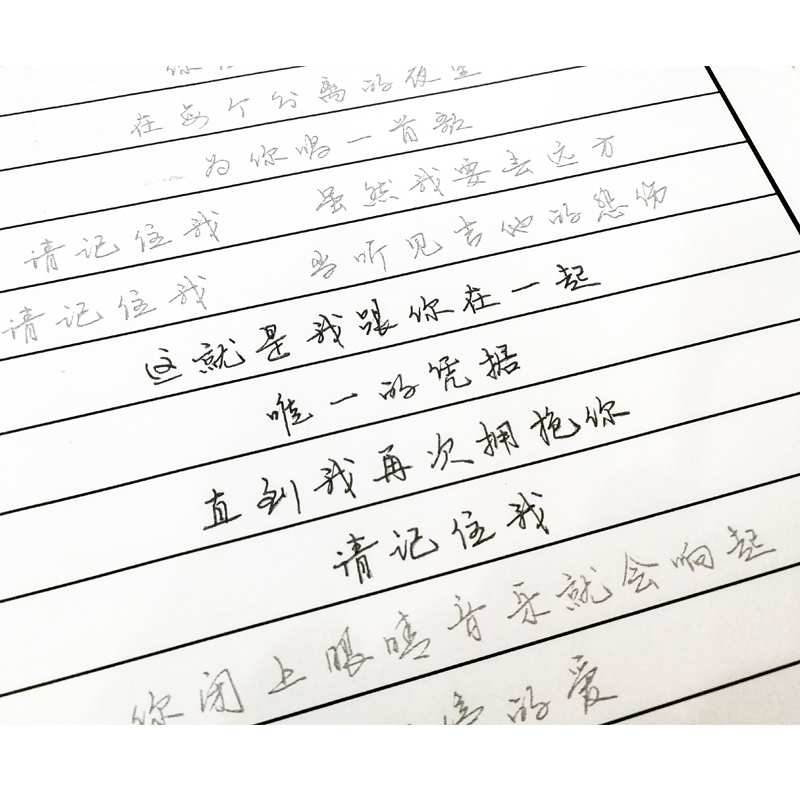 你
在每个分离的夜里
为你唱一首歌
请记住我 虽然我要去远方
请记住我 当听见吉他的悲伤
这就是我跟你在一起
唯一的凭据
直到我再次拥抱你
请记住我
你闭上眼睛音乐就会响起
的爱